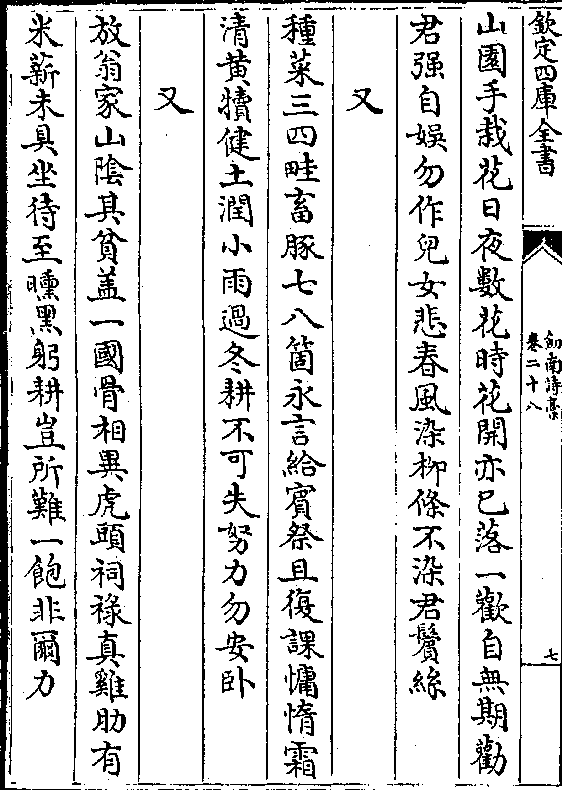 欽定四庫全書
劔南詩稾
卷二十八
七
山園手栽花日夜數花時花開亦已落一歡自無期勸
君强自娛勿作兒女悲春風染柳條不染君鬢絲
又
種菜三四畦畜豚七八箇永言給賓祭且復課慵惰霜
清黄犢健土潤小雨過冬耕不可失努力勿安卧
又
放翁家山陰其貧盖一國骨相異虎頭祠祿真雞肋有
米薪未具坐待至曛黑躬耕豈所難一飽非爾力